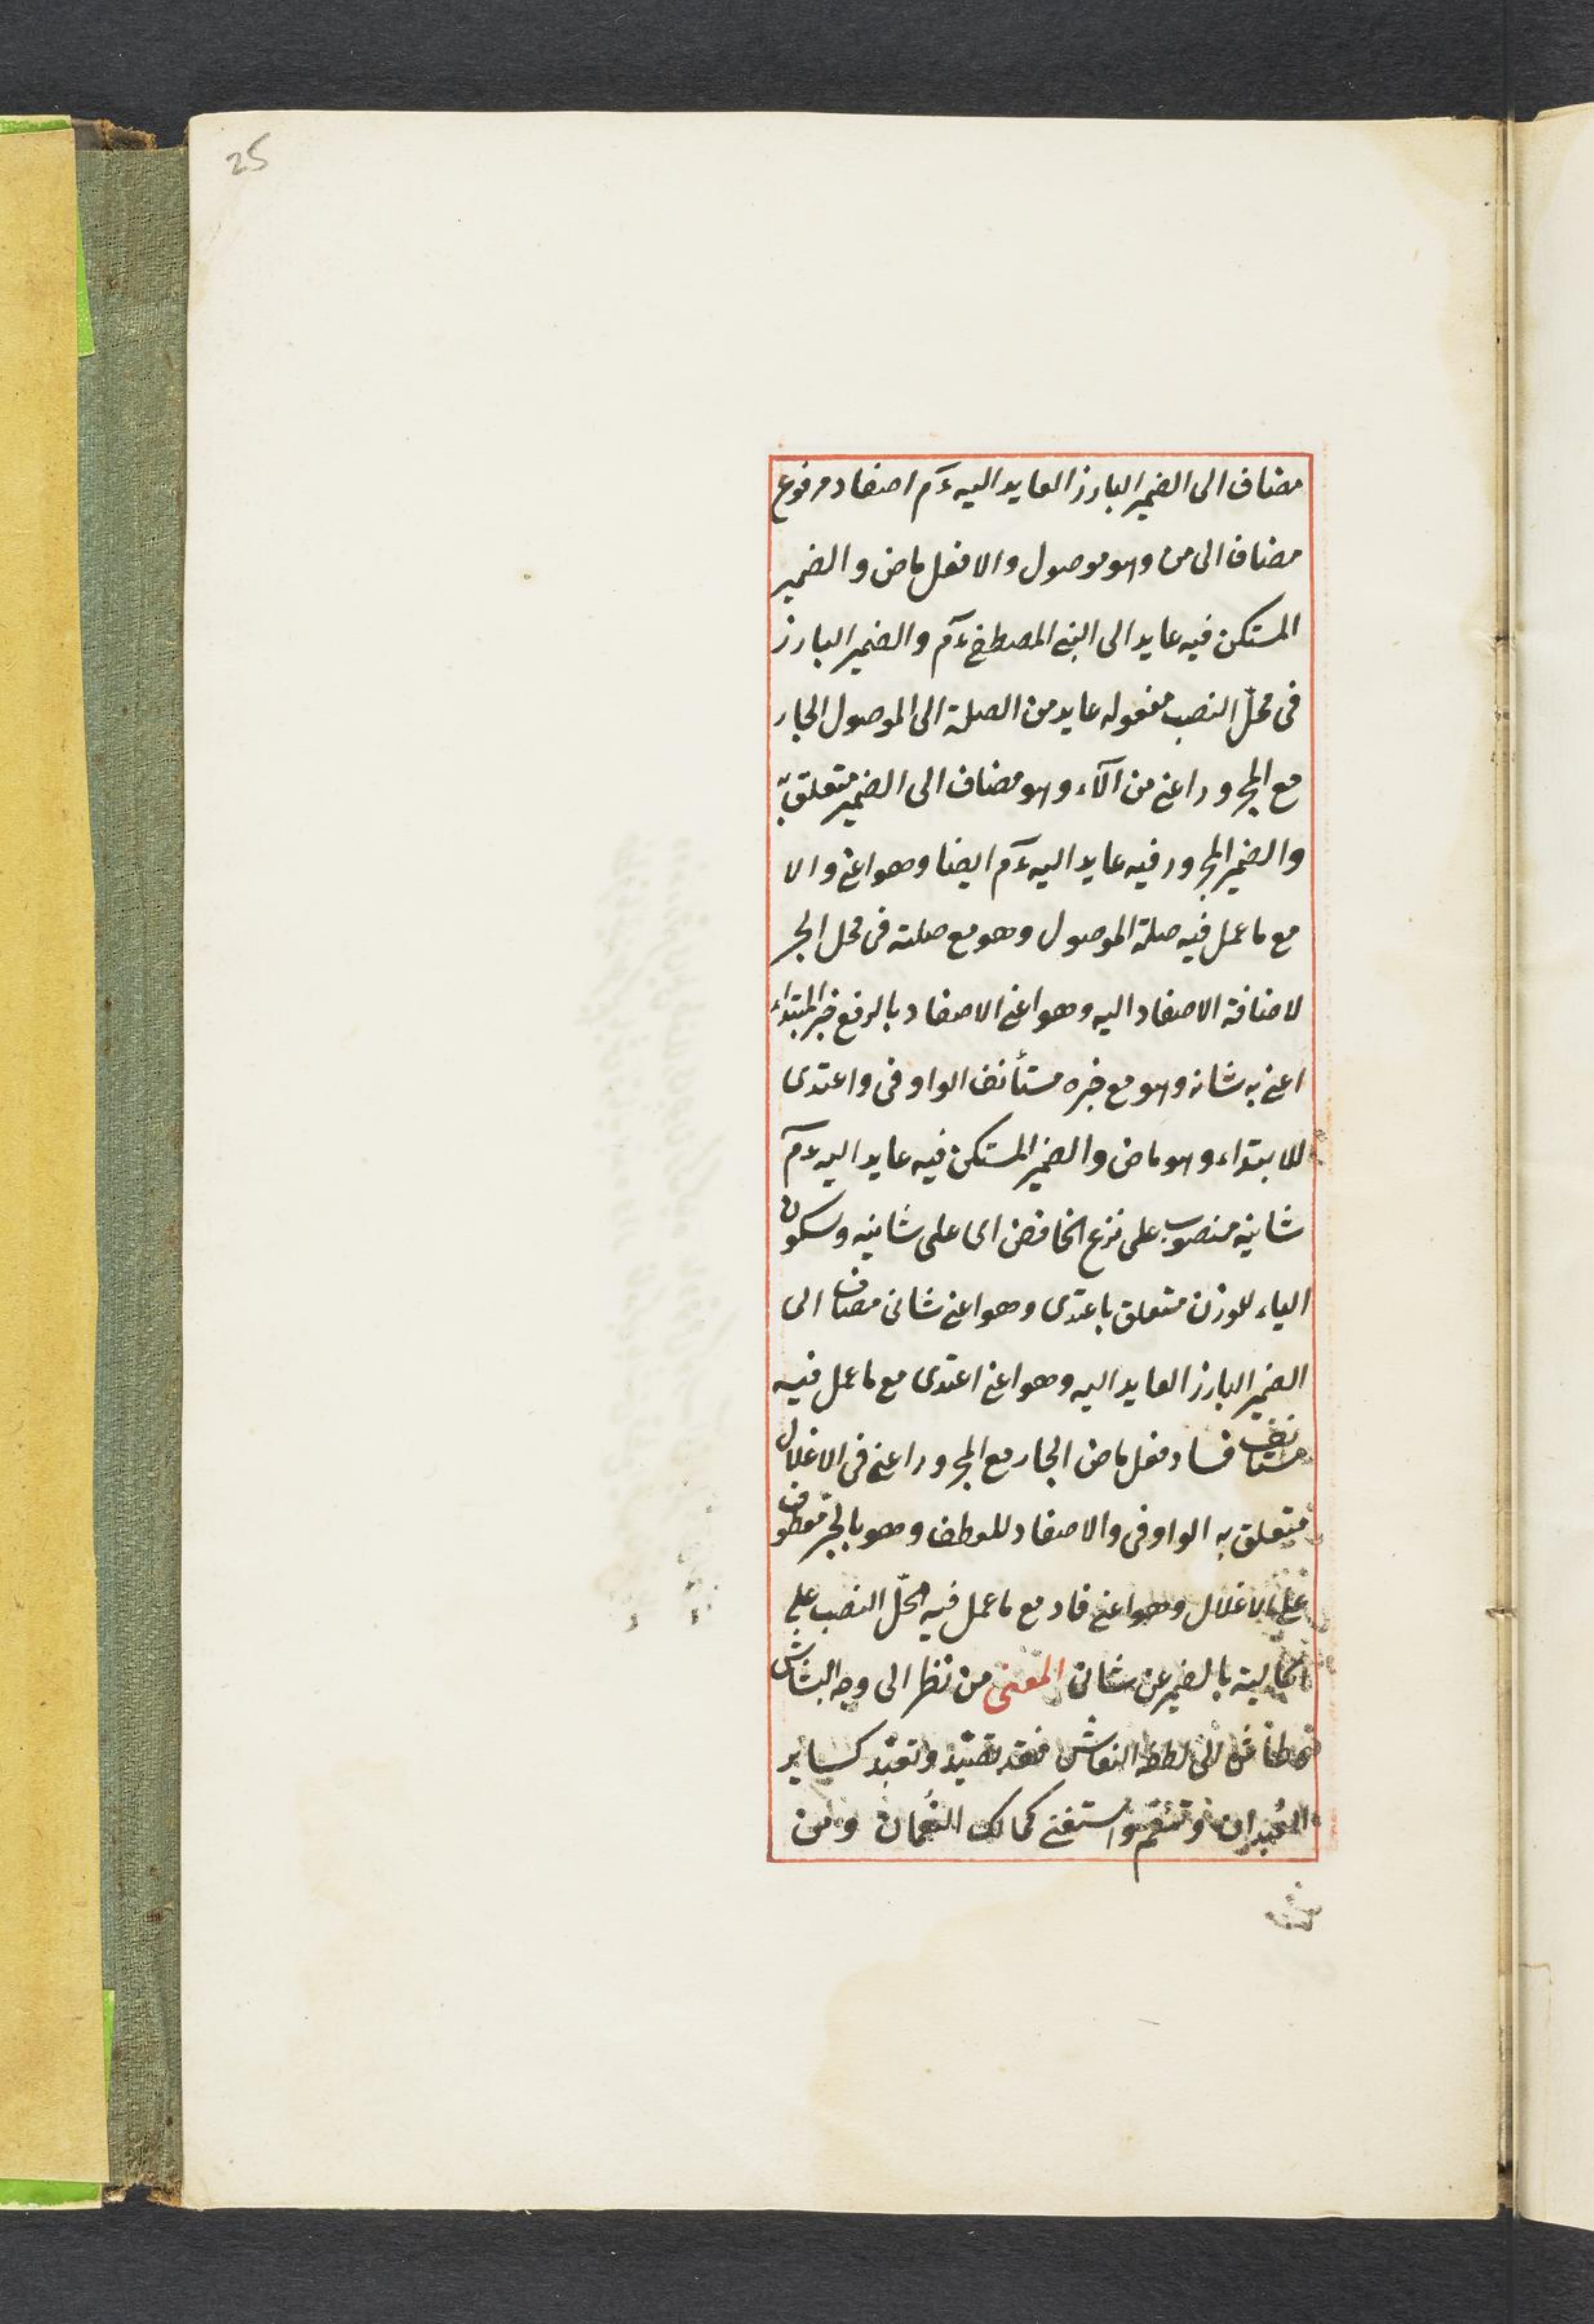 25
مضاف الى الضمير البارز العايد اليه ءم اصفاد مرفوع
مضاف الى من وهو موصول والا فعل ماض والضمير
المستكن فيه عايد الى النبى المصطفى ءم والضمير البارز
فى محلّ النصب مفعوله عايد من الصلة الى الموصول الجار
مع المجرور اعنى من آلاء وهو مضاف الى الضمير متعلق به
والضمير المجرور فيه عايد اليه ءم ايضا وهو اعنى والا
مع ما عمل فيه صلة الموصول وهو مع صلته فى محل الجر
لاضافة الاصفاد اليه وهو اعنى الاصفاد بالرفع خبر المبتداء
اعنى به شانه وهو مع خبره مستأنف الواو فى واعتدى
للابتداء وهو ماض والضمير المستكن فيه عايد اليه ءم
شانيه منصوب على نزع الخافض اى على شانيه وسكون
الياء للوزن متعلق باعتدى وهو اعنى شانى مضاف الى
الضمير البارز العايد اليه وهو اعنى اعتدى مع ما عمل فيه
مستانف فساد فعل ماض الجار مع المجرور اعنى فى الاغلال
متعلق به الواو فى والاصفاد للعطف وهو بالجر معطوف
على الاغلال وهو اعنى فاد مع ما عمل فيه محلّ النصب على
الحالية بالضمير عن شانى المعنى من نظر الى وجه البشاش
الى لطفه النعاش فقد تصيّد وتعبّد كساير
العُبدان وتنعّم واستغنى كمالك النُعمان ومن